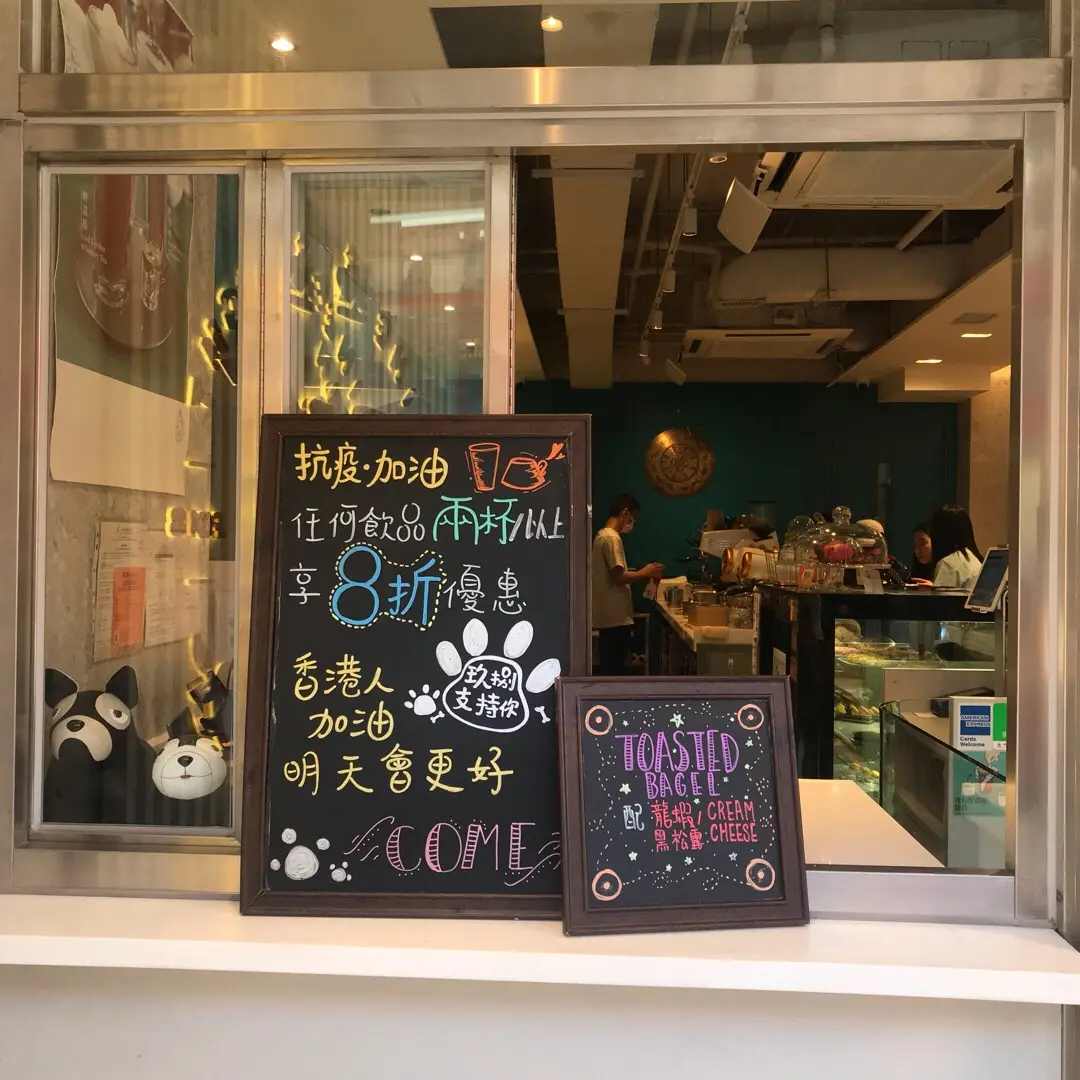 抗疫·加油
任何飲品兩杯/以上
享8折優惠
玖捌
支持你
香港人
加油
明天會更好
COME
TOASTED
BAGEL
配 龍蝦/ CREAM
黑松露 CHEESE
AMERICAN
EXPRESS
Cards
Welcome